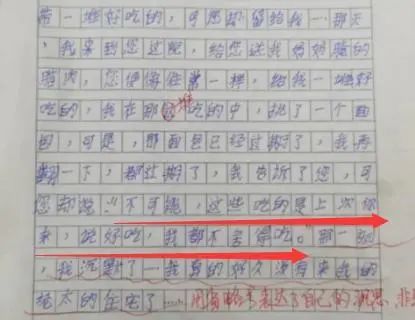 带一堆好吃的，可您却留给我一那天
，我来到您这呢，给您送我妈妈腌的
腊肉，您便像往常一样，给我一堆好
吃的，我在那堆吃的中，挑了一个面
包，可是，那面包已经过期了，我再
翻一下，都过期了，我告诉了您，可
您却说："不可能，这些吃的是上次你
来，说好吃，我都不舍得吃。"那一刻
，我沉默了一我真的好久没有来我的
太的住宅了……用省略号表达了自己的沉思